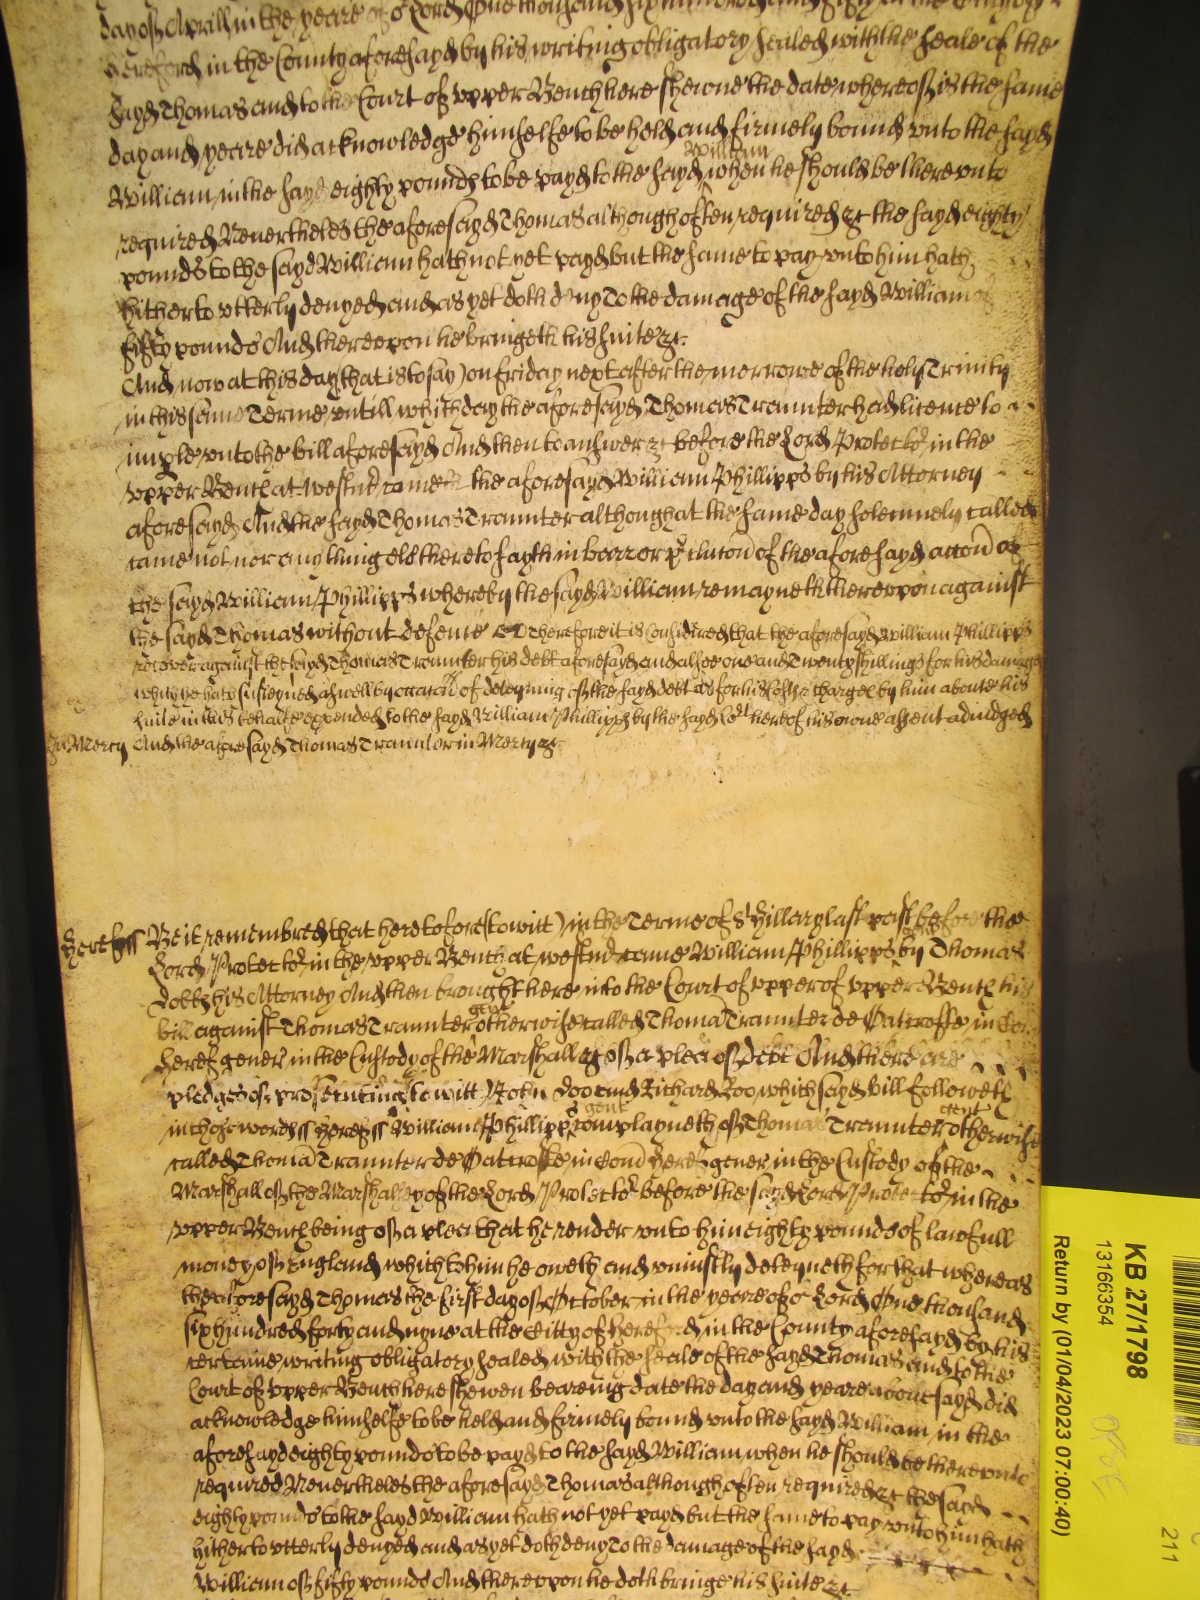 day of Aprill in the yeare of or Lord One thousand six hundred and fifty at the Citty of
Hereford in the County aforesayd by his writing obligatory sealed with the seale of the
sayd Thomas and to the Court of upper Bench here shewne the date whereof is the same
day and yeare did acknowledge himselfe to be held and firmely bound unto the sayd
William in the sayd eighty pounds to be payd to the sayd William when he should be thereunto
required Neverthelesse the aforesayd Thomas although often required &c the sayd eighty
pounds to the sayd William hath not yet payd but the same to pay unto him hath
hitherto utterly denyed and as yet doth deny To the damage of the sayd William of
fifty pounds And thereupon he bringeth his suite &c.
And now at this day (that is to say) on Friday next after the morrowe of the holy Trinity
in this same Terme untill which day the aforesayd Thomas Traunter had licence to
imple unto the bill aforesayd And then to answer &c before the Lord Protector in the
upper Bench at Westmr came the aforesayd William Phillipps by his Attorney
aforesayd And the sayd Thomas Traunter although at the same day solemnely called
came not nor any thing els thereto sayth in barr or pclucon of the aforesayd accon of
the sayd William Phillipps whereby the sayd William remayneth thereupon against
the sayd Thomas without defence Therefore it is Considered that the aforesayd William Phillipps
recover against the sayd Thomas Traunter his debt aforesayd and alsoe one and Twenty shillings for his damages
which he hath susteyned aswell by occacon of deteyning of the sayd debt as for his costs & charges by him aboute his
suite in this behalfe expended to the sayd William Phillipps by the sayd Cort hereof his owne assent adiudged
In Mercy And the aforesayd Thomas Traunter in Mercy &c
Herefss Be it remembred that heretofore (to witt) in the Terme of St Hillary last past before the
Lord Protector in the upper Bench at Westmr came William Phillipps gent by Thomas
Dobbs his Attorney And then brought here into the Court of upper of upper Bench his
bill against Thomas Traunter gent otherwise called Thoma Traunter de Oatcroffe in Com
Heref gener in the Custody of the Marshall &c of a plea of debt And there are
pledges of prosecuting (to witt) John Doo and Richard Roo which sayd bill followeth
in these words ss Herefss William Phillipps gent complayneth of Thomas Traunter gent otherwise
called Thoma Traunter de Oatcroffe in Com Heref gener in the Custody of the
Marshall of the Marshallsey of the Lord Protector before the sayd Lord Protector in the
upper Bench being of a plea that he render unto him eighty pounds of lawfull
money of England which to him he oweth and uniustly deteyneth for that whereas
the aforesayd Thomas the first day of October in the yeare of or Lord One thousand
six hundred forty and nyne at the Citty of Hereford in the County aforesayd by his
certaine writing obligatory sealed with the seale of the sayd Thomas and to the
Court of upper Bench here shewen beareing date the day and yeare abovesayd did
acknowledge himselfe to be held and firmely bound unto the sayd William in the
aforesayd eighty pounds to be payd to the sayd William when he should be thereunto
required Neverthelesse the aforesayd Thomas although often required &c the sayd
eighty pounds to the sayd William hath not yet payd but the same to pay unto him hath
hitherto utterly denyed and as yet doth deny To the damage of the sayd
William of fifty pounds And thereupon he doth bringe his suite &c
KB 27/1798
13166354
Return by (01/04/2023 07:00:40)
211